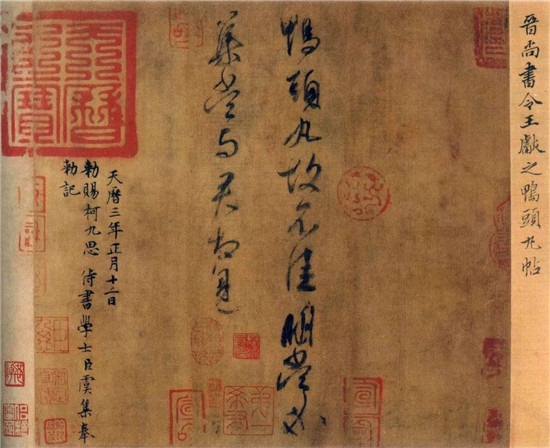 晉尚書令王獻之鴨頭丸帖
鴨頭丸故不佳明當必
集當与君相見
天曆之寶
天曆三年正月十二日
勑賜柯九思侍書學士臣虞集奉
勑記